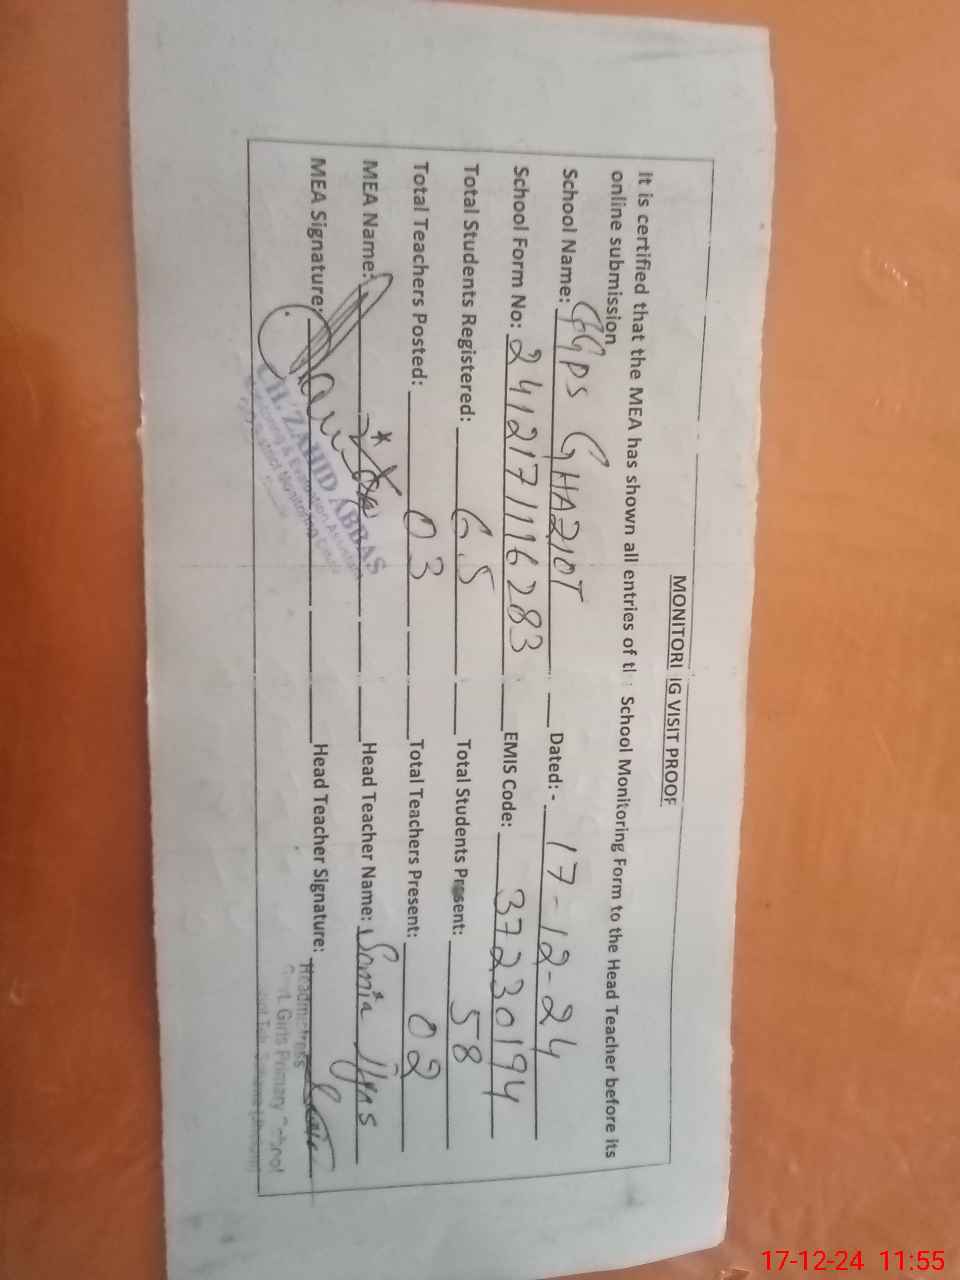 MONITORI IG VISIT PROOF
It is certified that the MEA has shown all entries of tl : School Monitoring Form to the Head Teacher before its
online submission
School Name: GGPS GHAZIOT Dated: - 17-12-24
School Form No: 241217 1116283 EMIS Code: 37230194
Total Students Registered: 65 Total Students Present: 58
Total Teachers Posted: 03 Total Teachers Present: 02
MEA Name: Head Teacher Name: Somia
MEA Signature: Head Teacher Signature:
CH. ZAHID ABBAS
Monitoring & Evaluation Assistant
District Monitoring
Headmistress
Govt. Girls Primary School
17-12-24 11:55